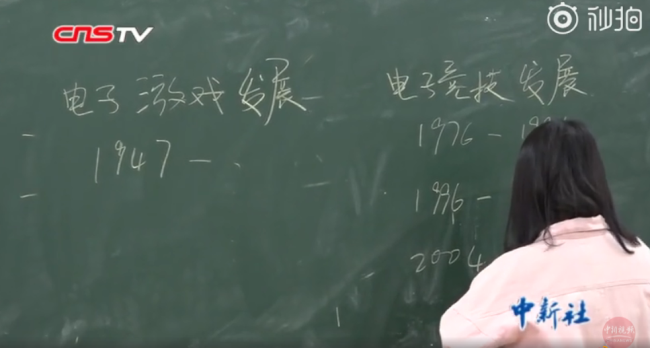 CNSTV
秒拍
电子游戏发展
1947—
电子竞技发展
1976—
1996—
2004
中新社